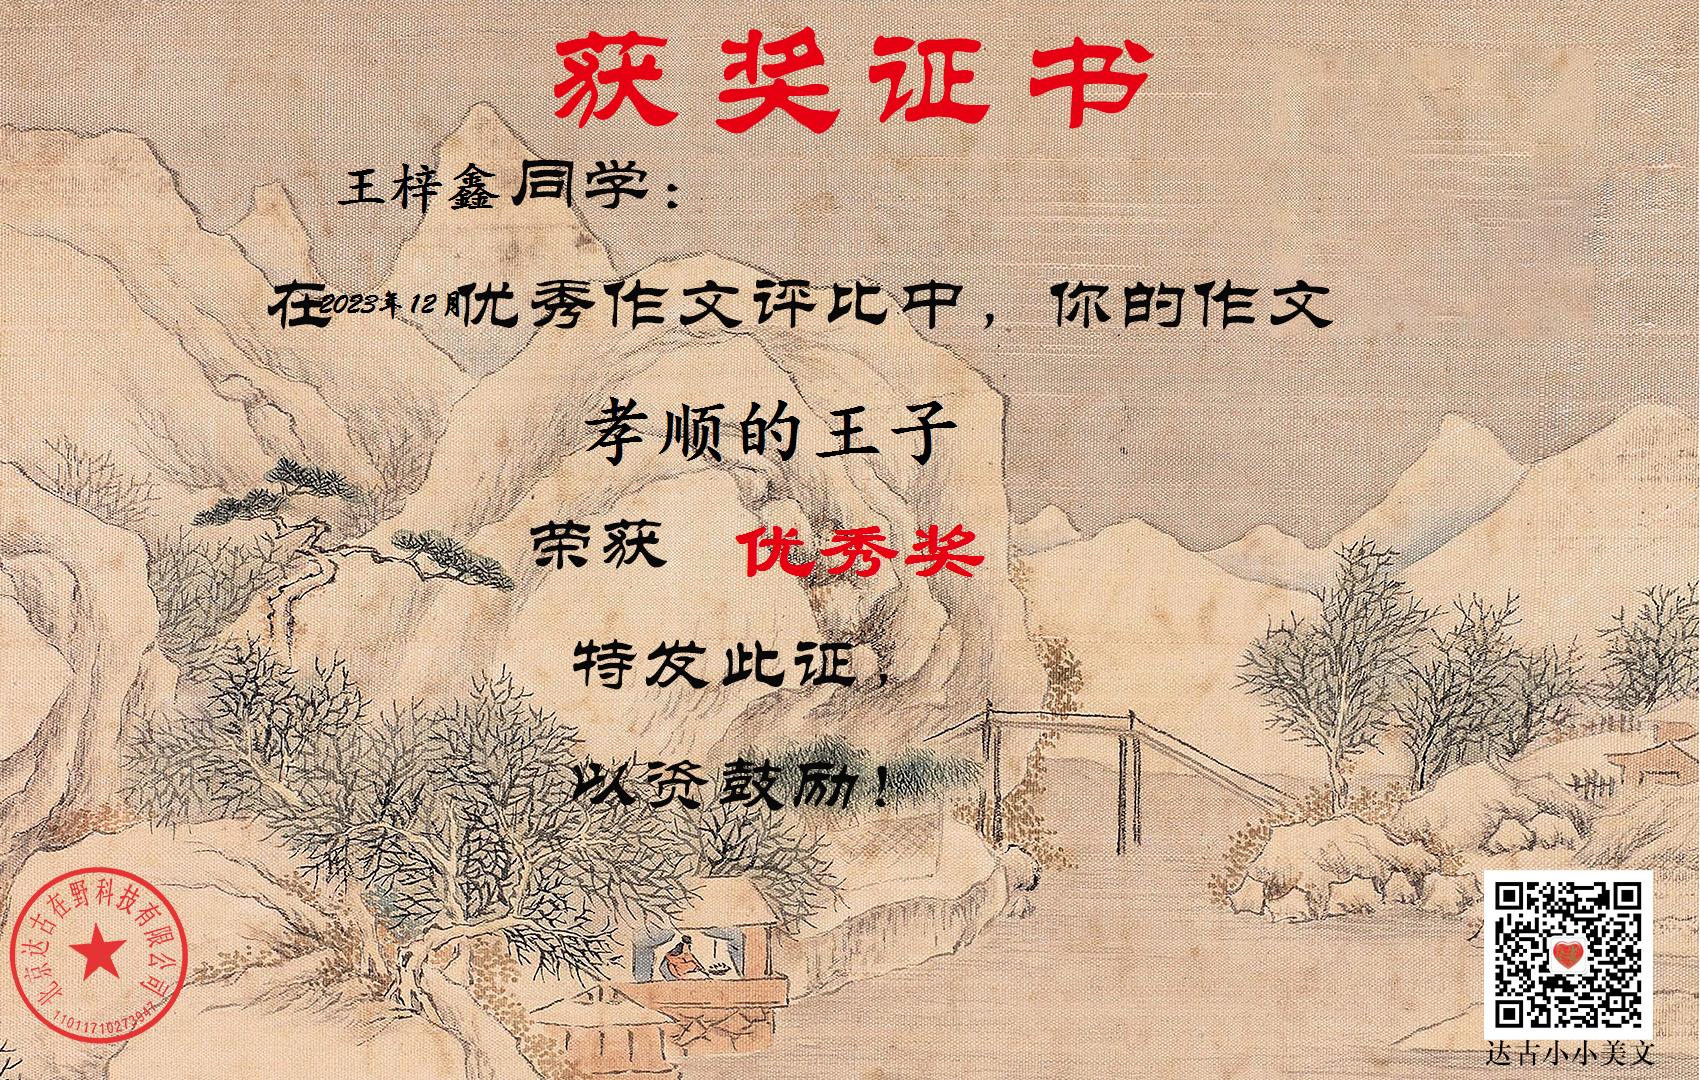 获奖证书
王梓鑫同学：
在2023年12月优秀作文评比中，你的作文
孝顺的王子
荣获 优秀奖
特发此证，
以资鼓励！
北京达古在野科技有限公司
11011710273947
达古小小美文